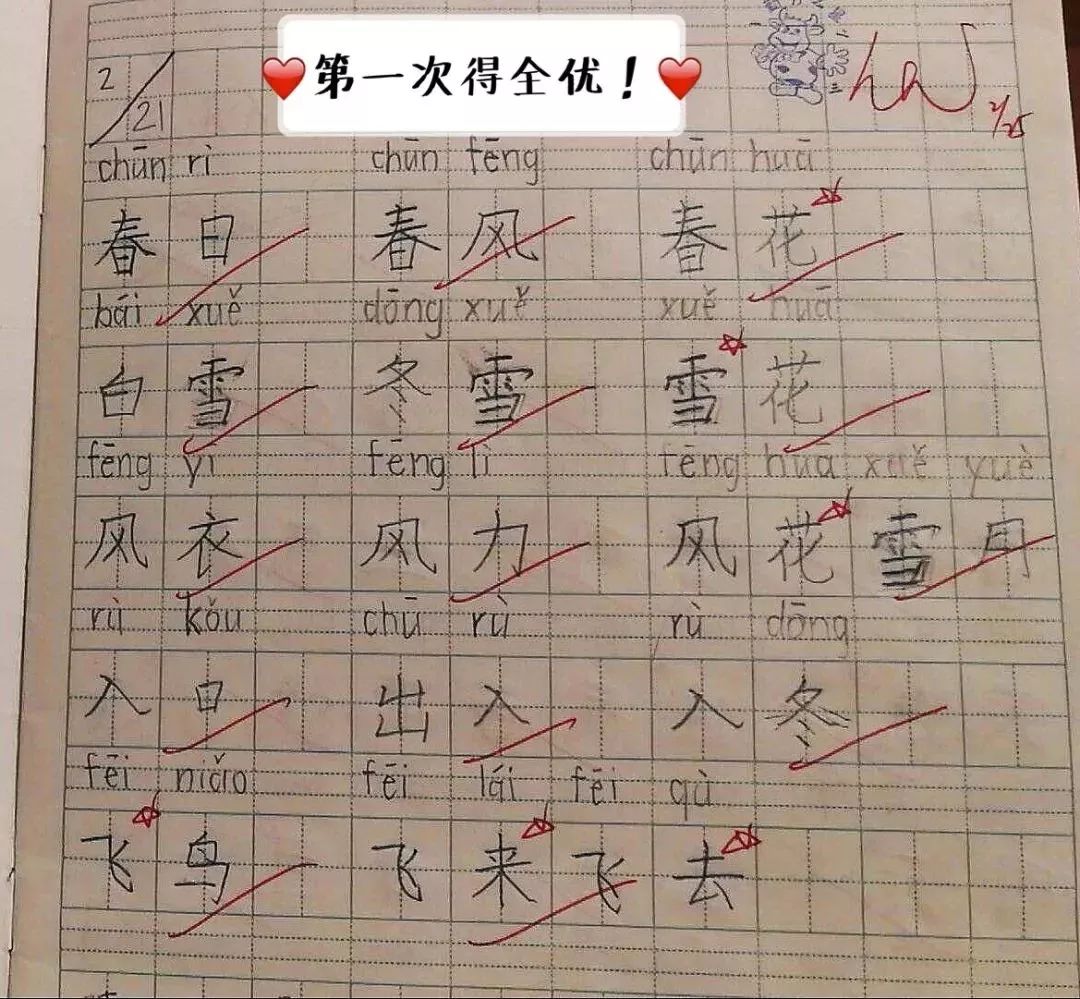 ❤️第一次得全优！❤️
2/21
2/25
chūn rì chūn fēng chūn huā
春日 春风 春花
bái xuě dōng xuě xuě huā
白雪 冬雪 雪花
fēng yī fēng lì fēng huā xuě yuè
风衣 风力 风花雪月
rù kǒu chū rù rù dōng
入口 出入 入冬
fēi niǎo fēi lái fēi qù
飞鸟 飞来飞去